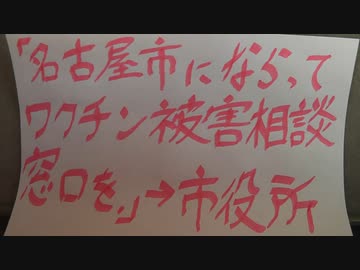 「名古屋市にならって
ワクチン被害相談
窓口を」→市役所